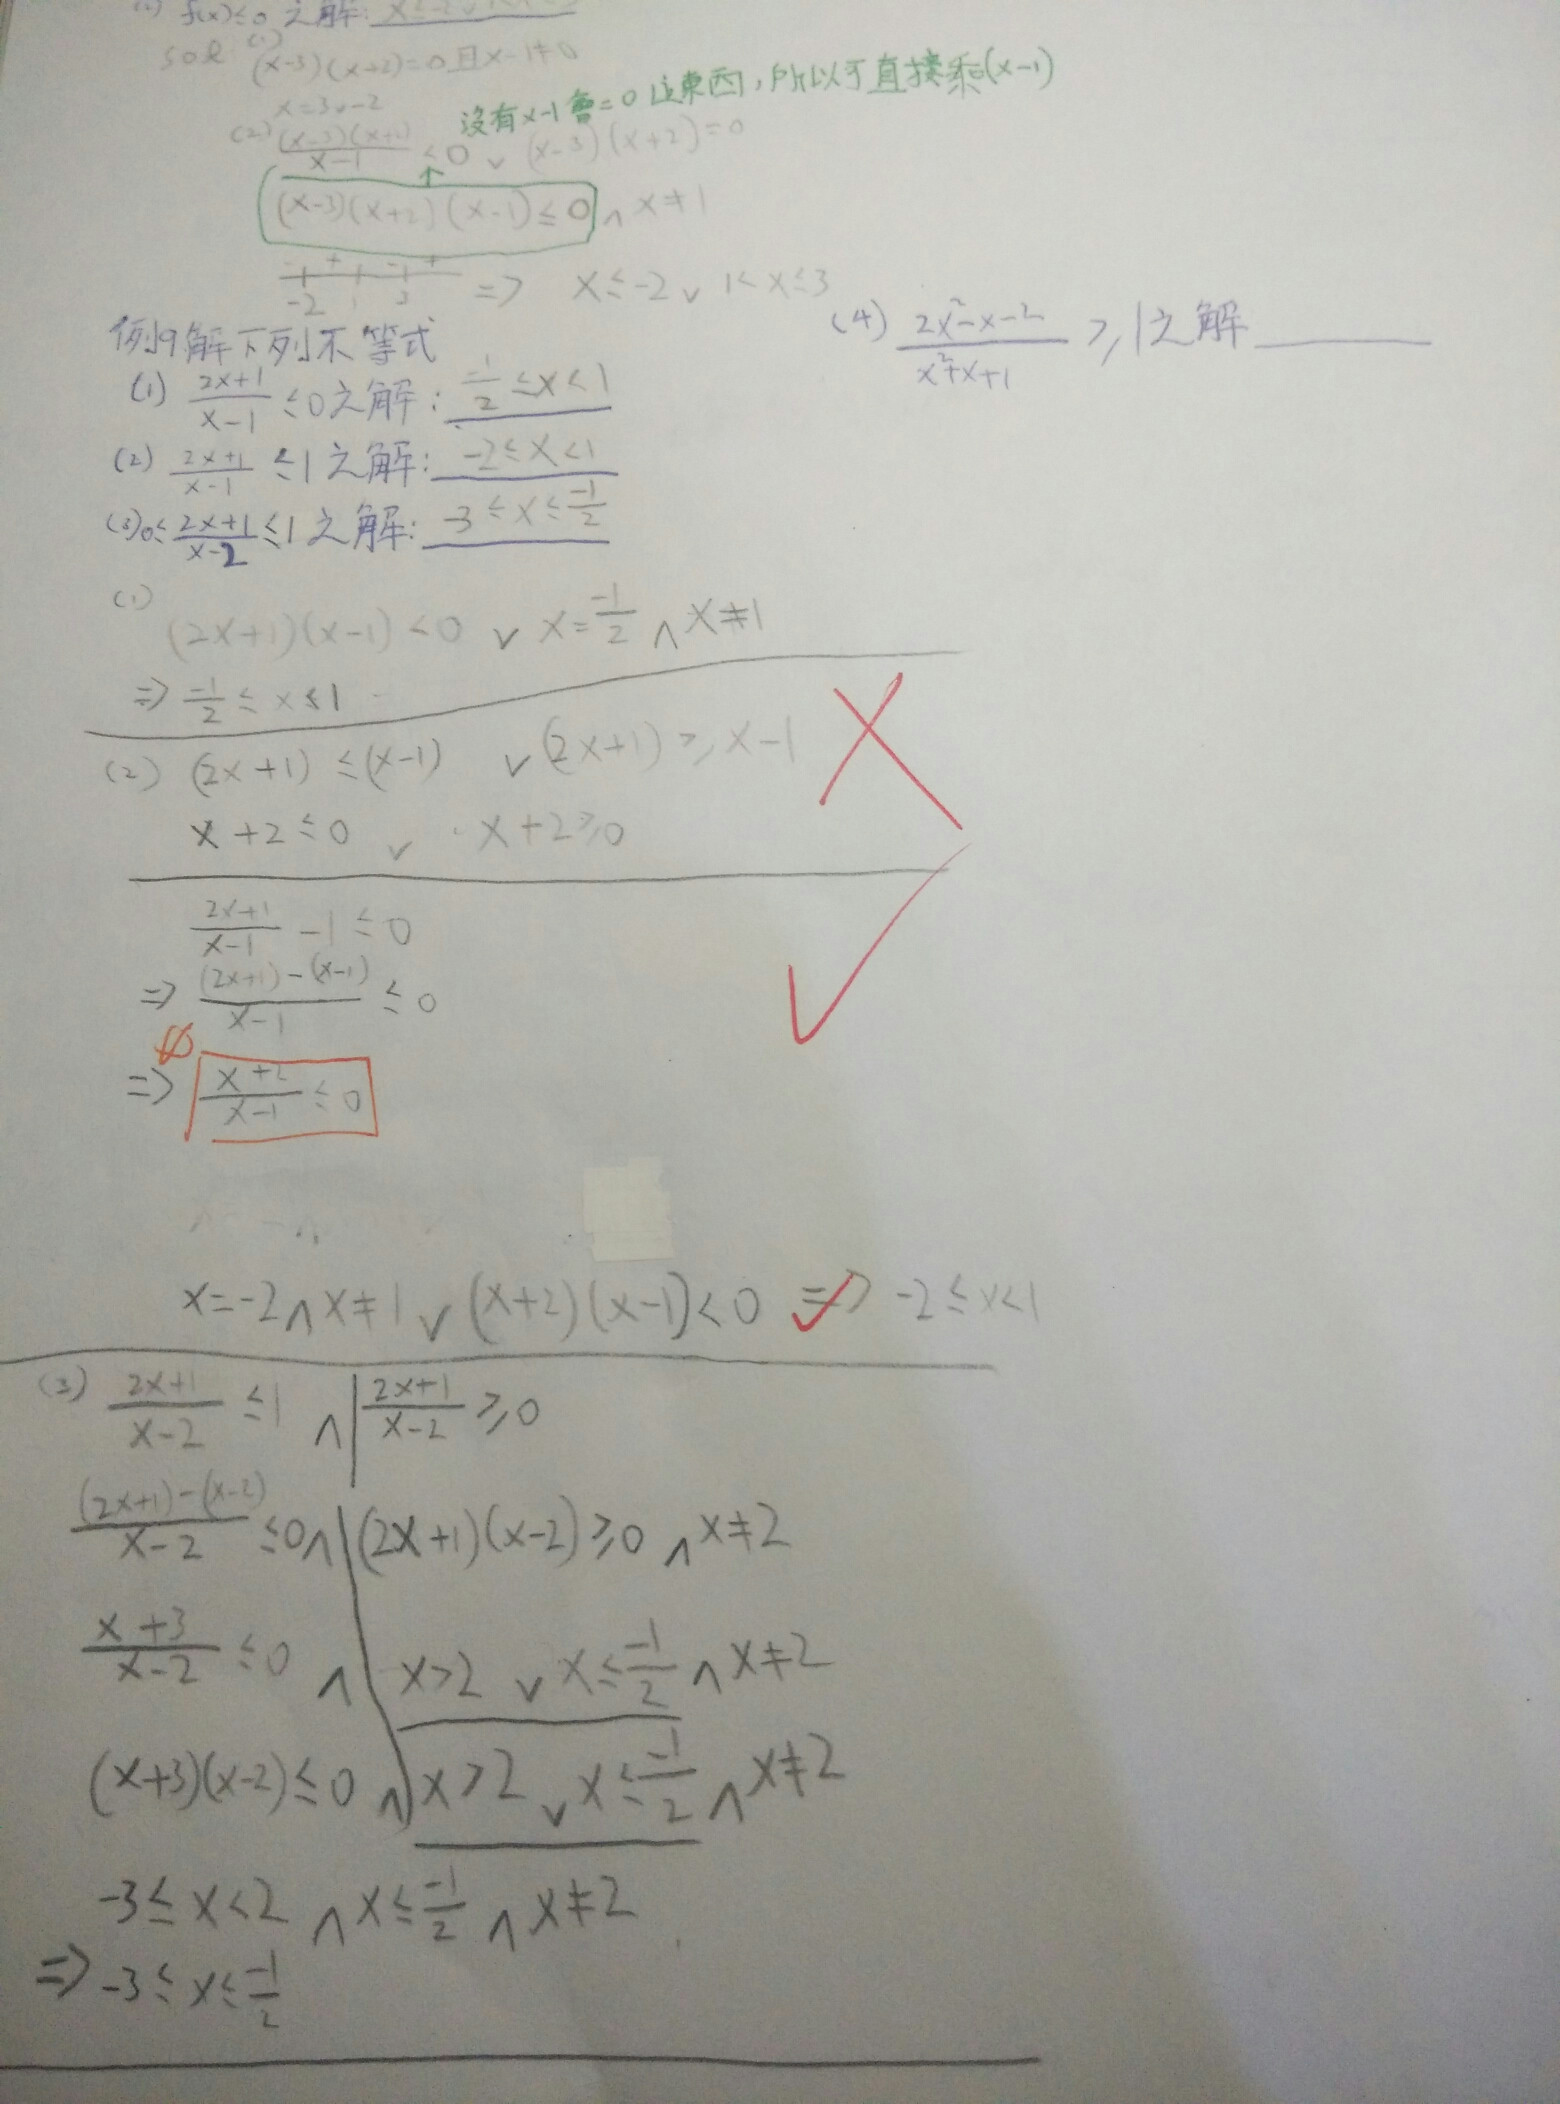 f(x)≤0 之解:
sol (1)
(x-3)(x+2)=0且x-1≠0
x=3∨-2
沒有x-1會=0這東西,所以可直接乘(x-1)
(2) (x-3)(x+2)/x-1 <0 ∨ (x-3)(x+2)=0
(x-3)(x+2)(x-1)≤0 ∧ x≠1
- + - +
-2 1 3 => x≤-2 ∨ 1<x≤3
例9.解下列不等式
(1) 2x+1/x-1 ≤0之解: -1/2 ≤x<1
(2) 2x+1/x-1 ≤1之解: -2≤x<1
(3) 0≤ 2x+1/x-2 ≤1之解: -3≤x≤ -1/2
(4) 2x²-x-2/x²+x+1 ≥1之解
(1)
(2x+1)(x-1)<0 ∨ x= -1/2 ∧ x≠1
=> -1/2 ≤ x <1
(2) (2x+1)≤(x-1) ∨ (2x+1)≥x-1
x+2≤0 ∨ x+2≥0
2x+1/x-1 -1≤0
=> (2x+1)-(x-1)/x-1 ≤0
=> x+2/x-1 ≤0
x=-2∧x≠1 ∨ (x+2)(x-1)<0 => -2≤x<1
(3) 2x+1/x-2 ≤1 ∧ 2x+1/x-2 ≥0
(2x+1)-(x-2)/x-2 ≤0 ∧ (2x+1)(x-2)≥0 ∧ x≠2
x+3/x-2 ≤0 ∧ x>2 ∨ x≤ -1/2 ∧ x≠2
(x+3)(x-2)≤0 ∧ x>2 ∨ x≤ -1/2 ∧ x≠2
-3≤x<2 ∧ x≤ -1/2 ∧ x≠2
=> -3≤x≤ -1/2